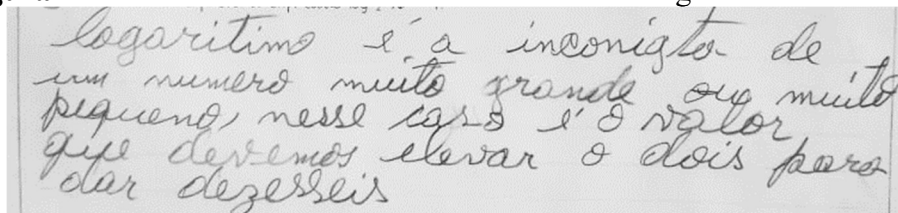 logaritimo é a inconigta de
um numero muito grande ou muito
pequeno, nesse caso é o valor
que devemos elevar o dois para
dar dezesseis